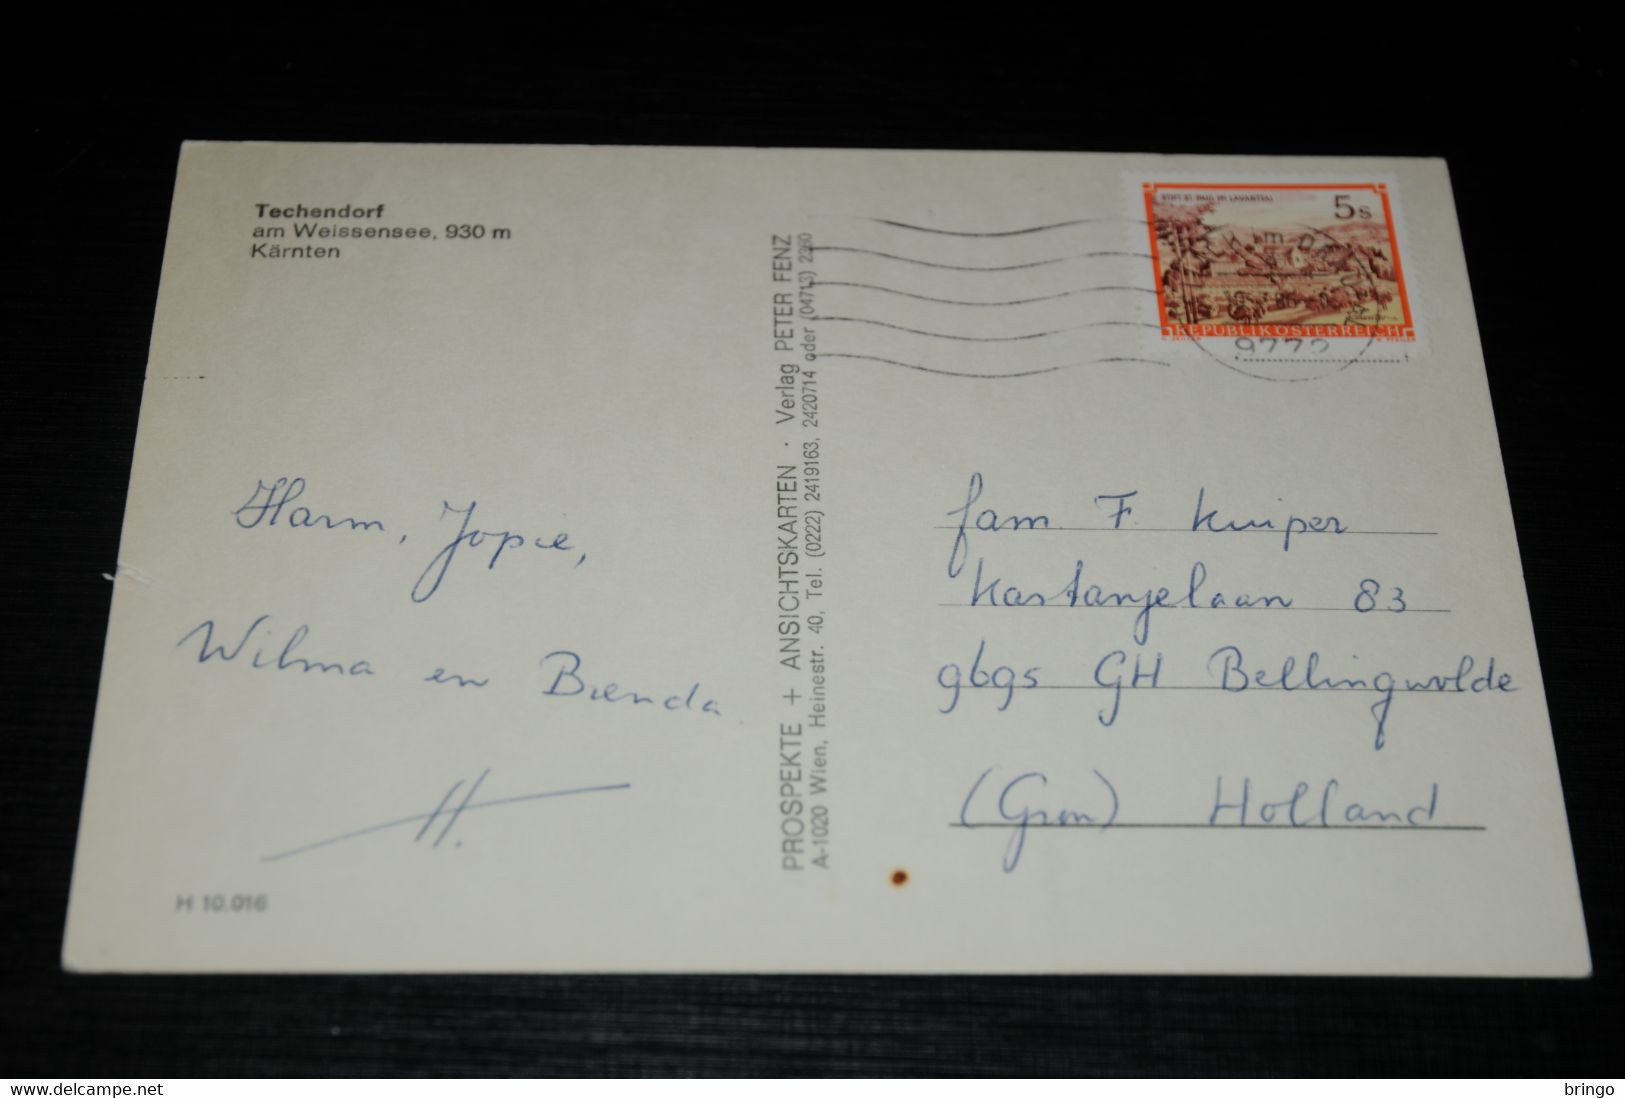 Techendorf
am Weissensee, 930 m
Kärnten
Harm, Jopie,
Wilma en Brenda
H.
H 10.016
PROSPEKTE + ANSICHTSKARTEN · Verlag PETER FENZ
A-1020 Wien, Heinestr. 40, Tel. (0222) 2419163, 2420714 oder (04713) 2360
STIFT ST. PAUL IM LAVANTTAL
5 s
REPUBLIK ÖSTERREICH
fam. F. Kuiper
Kastanjelaan 83
9695 GH Bellingwolde
(Gron) Holland
delcampe.net
bringo